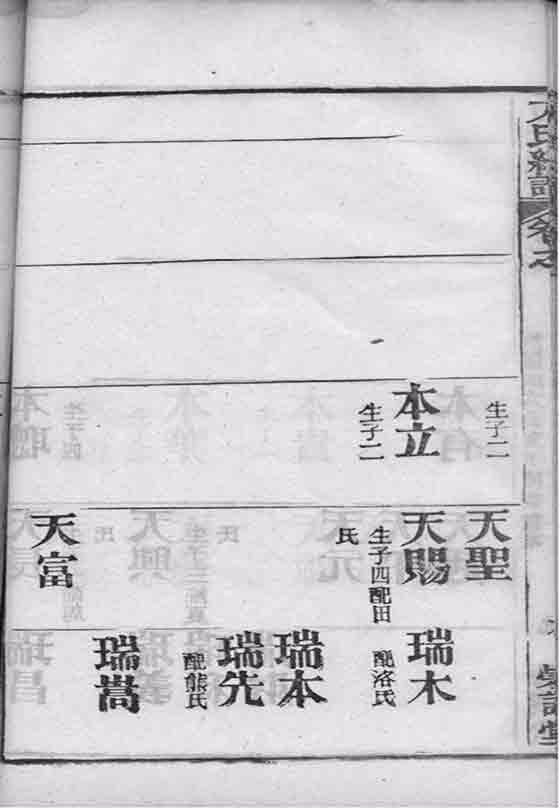 卷之
生子二
本立
生子二
天聖
天賜
生子四配田
氏
天富
瑞木
配洛氏
瑞本
瑞先
配熊氏
瑞嵩